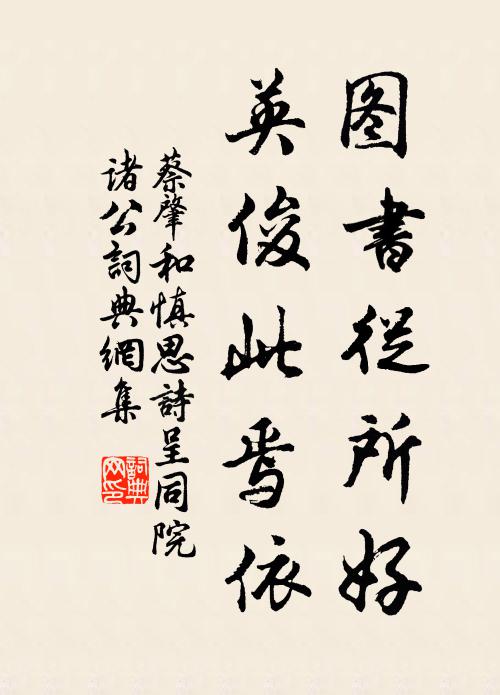 图書從所好
英俊此焉依
蔡肇和慎思詩呈同院
诸公詞典網集
詞典网印